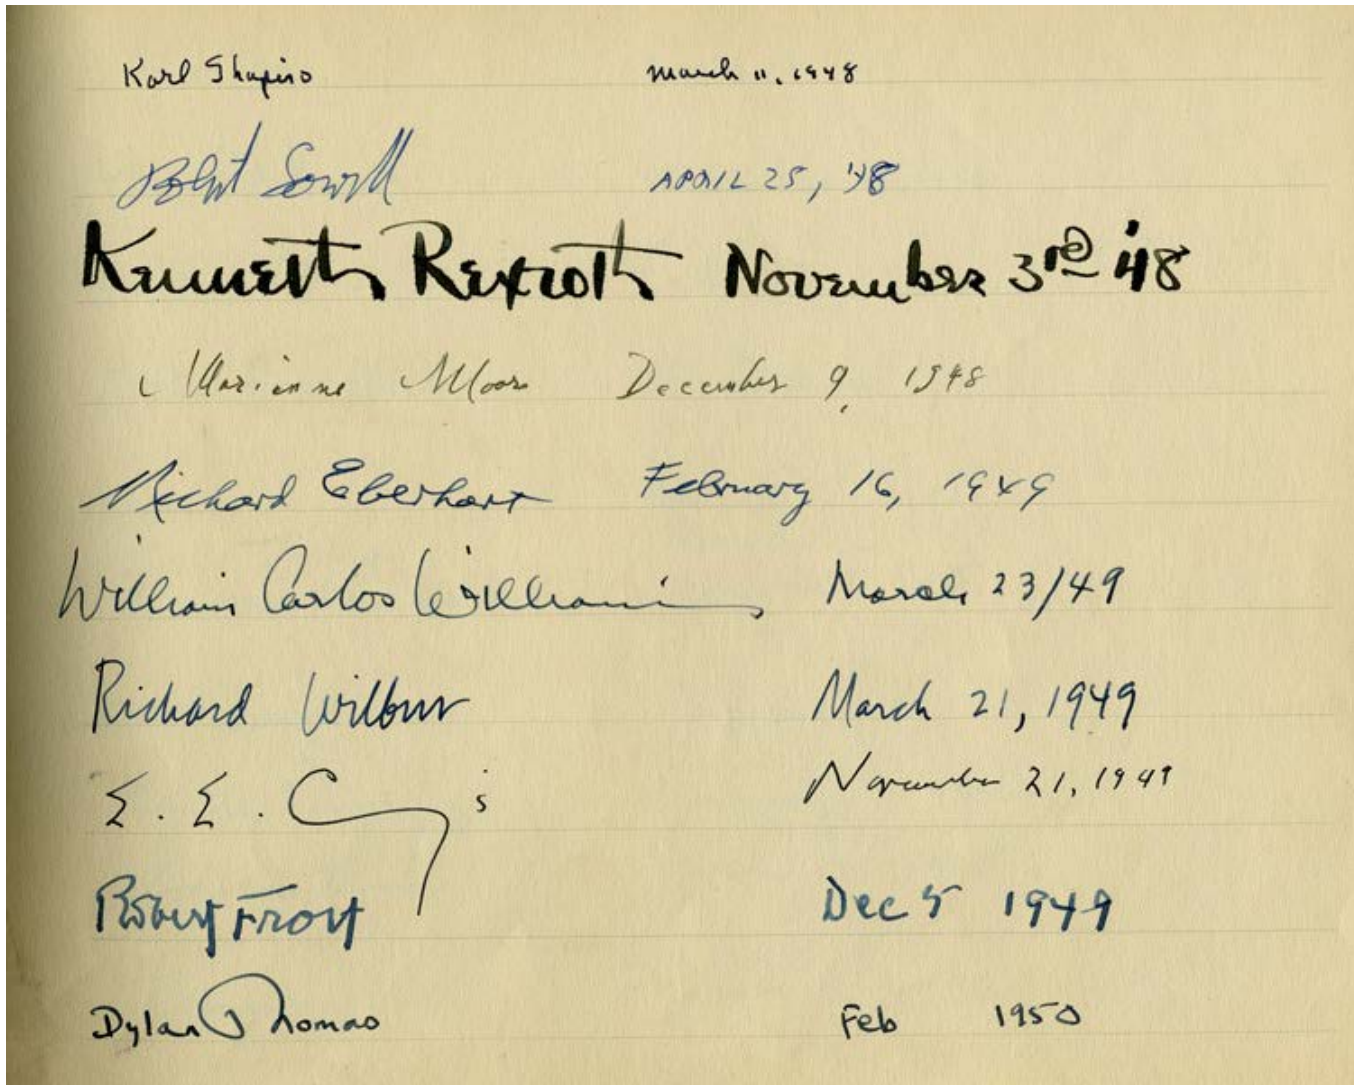 Karl Shapiro March 11, 1948
Robert Lowell APRIL 25, '48
Kenneth Rexroth November 3rd '48
Marianne Moore December 9, 1948
Richard Eberhart February 16, 1949
William Carlos Williams March 23/49
Richard Wilbur March 21, 1949
E. E. C s November 21, 1949
Robert Frost Dec 5 1949
Dylan Thomas Feb 1950